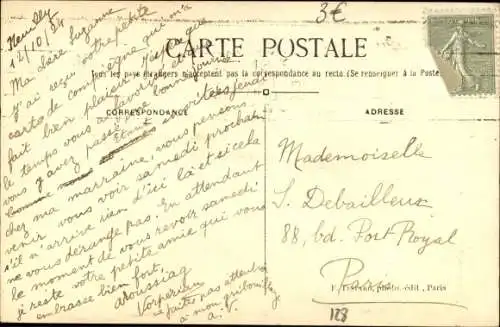 3€
Neuilly
12/10/24
Ma chère Suzanne
J'ai reçu votre petite
carte de Compiègne qui m'a
fait bien plaisir. J'espère que
le temps vous a favorisé et que
vous y avez passé une bonne journée
Étant invitées jeudi
chez ma marraine, nous pensons
venir vous voir samedi prochain
s'il n'arrive rien d'ici là et si cela
ne vous dérange pas. En attendant
le moment de vous revoir samedi
je reste votre petite amie qui vous
embrasse bien fort.
Aroussiag
Vosperian
ne faites pas attention
à mon gribouillage
A.V.
CARTE POSTALE
Tous les pays étrangers n'acceptent pas la correspondance au recto. (Se renseigner à la Poste
CORRESPONDANCE
ADRESSE
Mademoiselle
S. Debailleux
88, bd. Port Royal
Paris
photo. édit., Paris
123